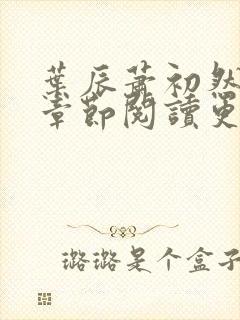 葉辰蕭初然
章節閱讀更
璐璐是个盒子